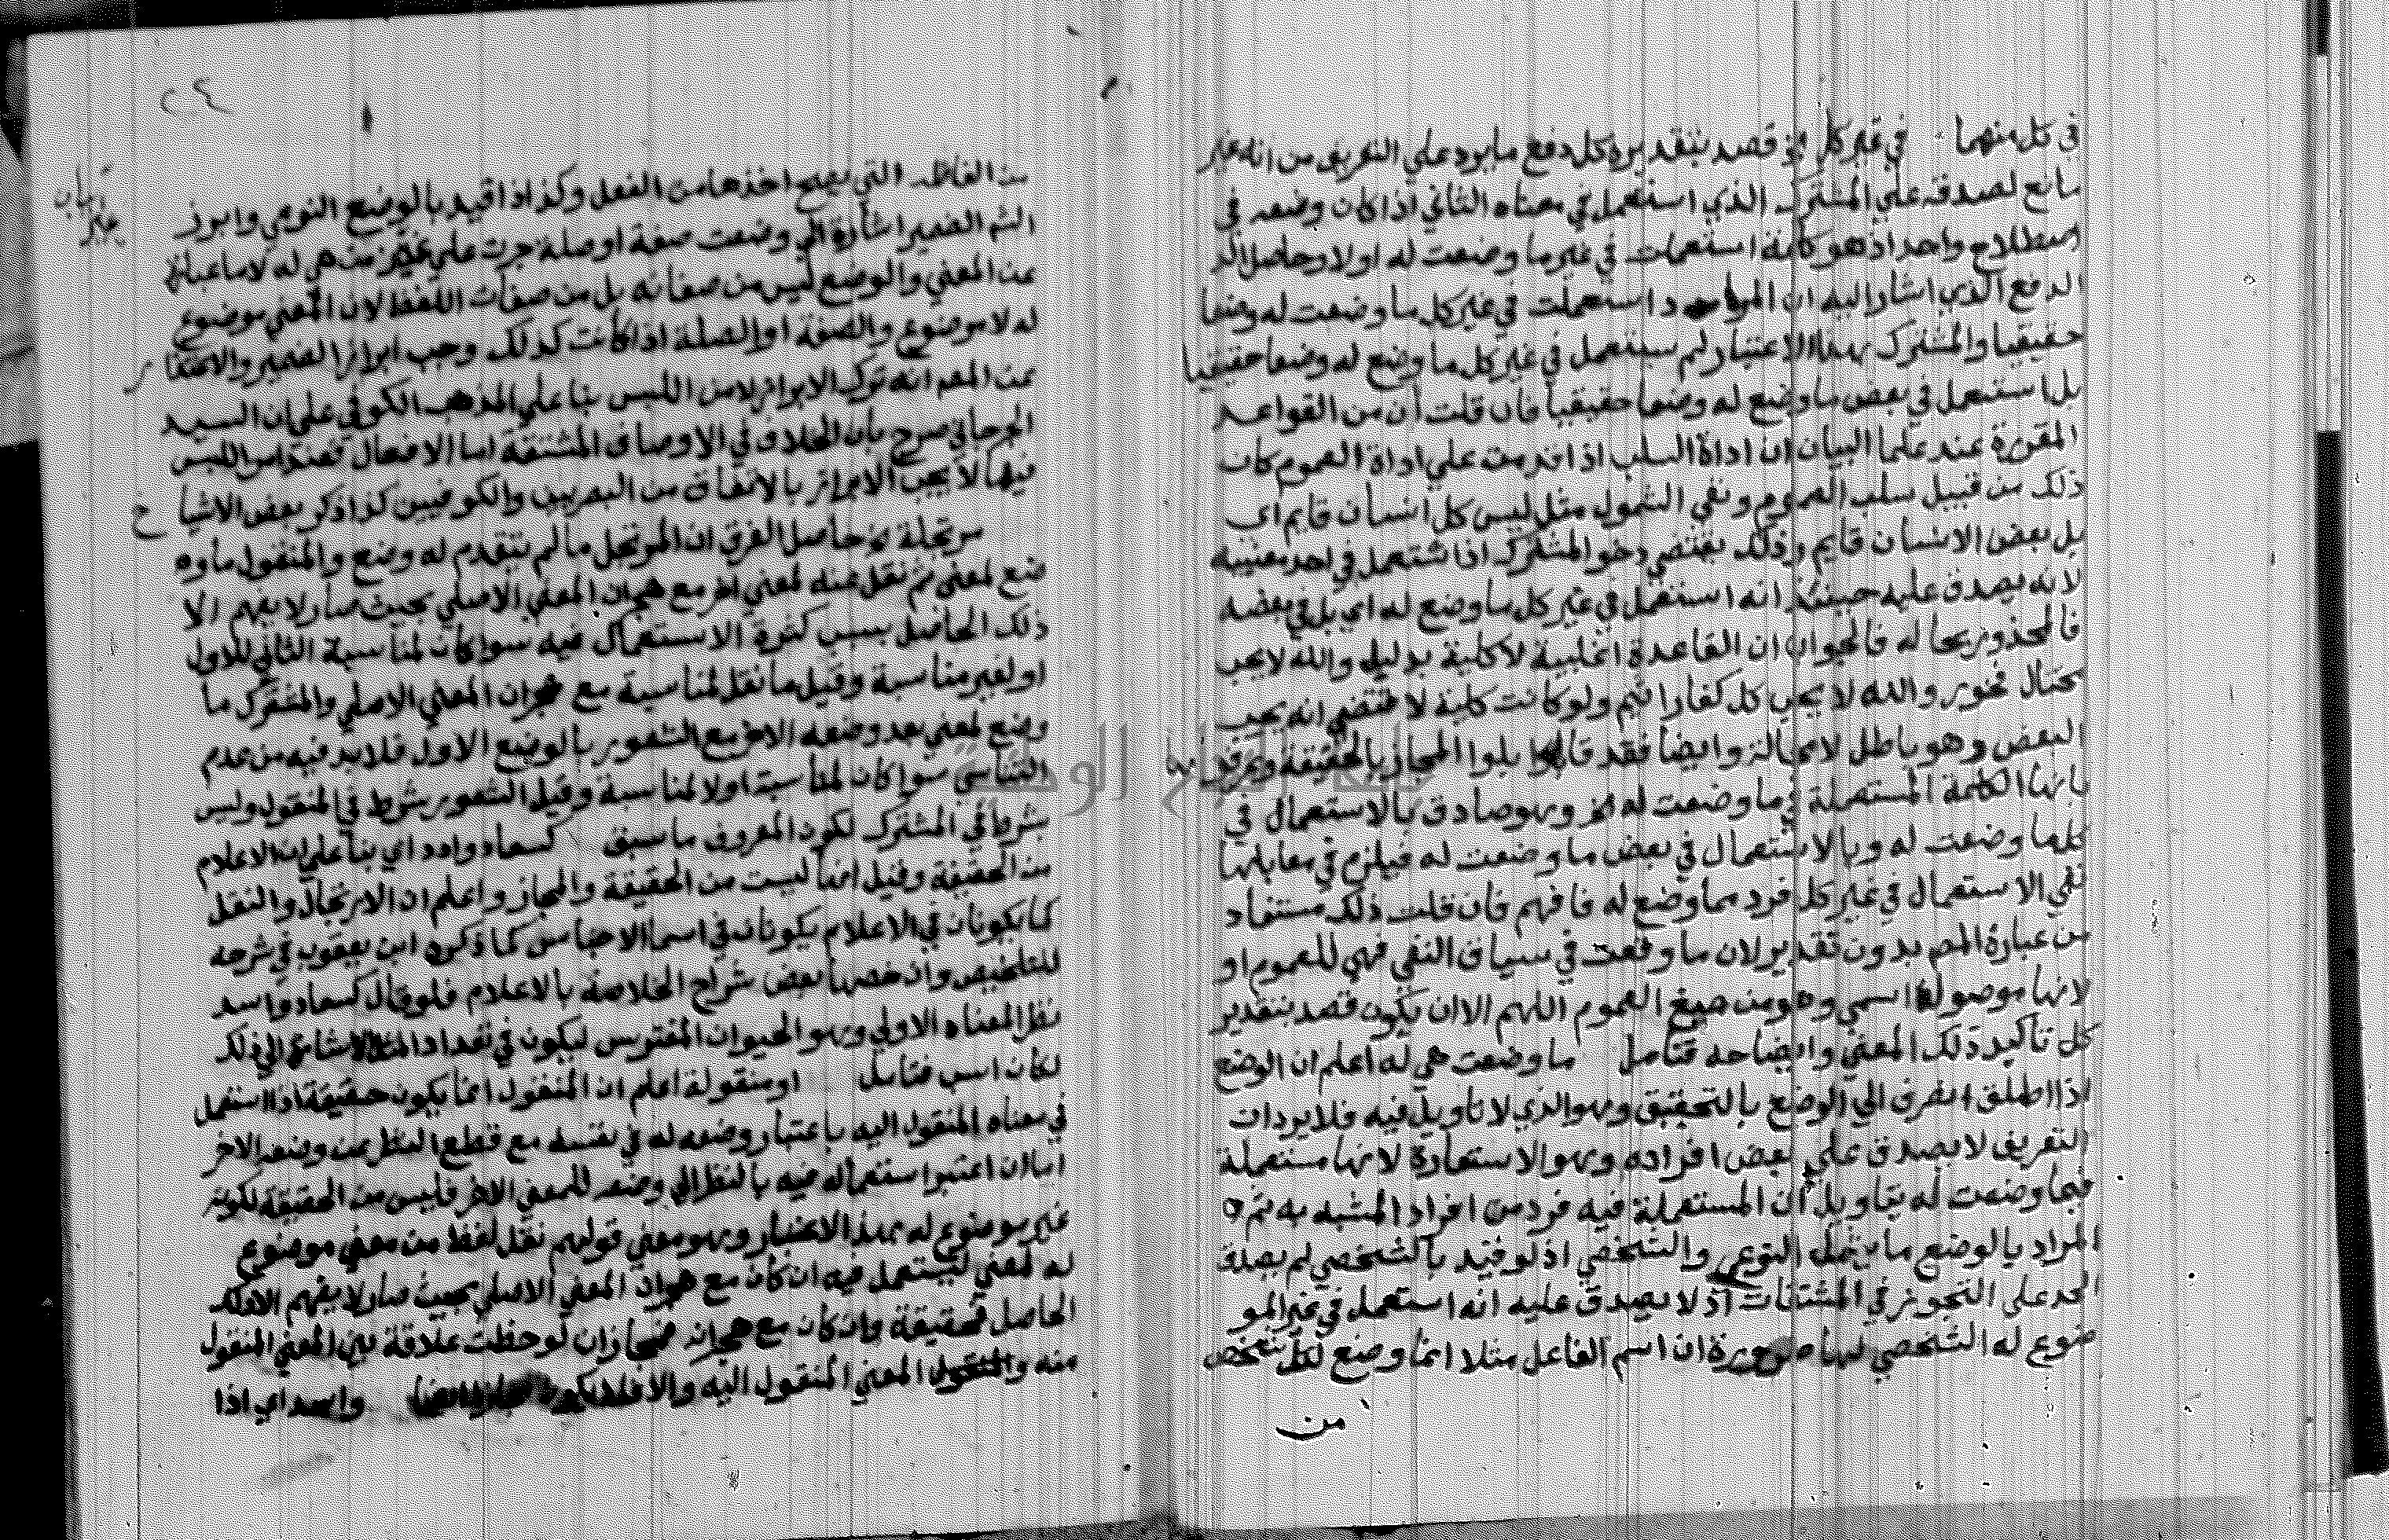 في كل منهما في غير كل الخ قصد بتقديره كل دفع ما يرد علي التعريف من انه غير
مانع لصدقه علي المشترك الذي استعمل في معناه الثاني اذا كان وضعه في
اصطلاح واحد اذ هو كلمة استعملت في غير ما وضعت له اولا وحاصل
الدفع الذي اشار اليه ان المراد استعملت في غير كل ما وضعت له وضعا
حقيقيا والمشترك بهذا الاعتبار لم يستعمل في غير كل ما وضع له وضعا حقيقيا
بل استعمل في بعض ما وضع له وضعا حقيقيا فان قلت ان من القواعد
المقررة عند علما البيان ان اداة السلب اذا قدمت علي اداة العموم كان
ذلك من قبيل سلب العموم ونفي الشمول مثل ليس كل انسان قايم اي
بل بعض الانسان قايم وذلك يقتضي دخو المشترك اذا استعمل في احد معنييه
لانه يصدق عليه حينئذ انه استعمل في غير كل ما وضع له اي بل في بعضه
فالمحذور بحاله فالجواب ان القاعدة اغلبية لا كلية بدليل والله لا يحب
مختال فخور والله لا يحب كل كفار اثيم ولو كانت كلية لاقتضي انه يحب
البعض وهو باطل لا محالة وايضا فقد قابلوا المجاز بالحقيقة وعرفوها
بانها الكلمة المستعملة في ما وضعت له الخ وهو صادق بالاستعمال في
كل ما وضعت له وبالاستعمال في بعض ما وضعت له فيلزم في مقابلها
نفي الاستعمال في غير كل فرد مما وضع له فافهم فان قلت ذلك مستفاد
من عبارة المص بدون تقدير لان ما وقعت في سياق النفي فهي للعموم او
لانها موصول اسمي وهو من صيغ العموم اللهم الا ان يكون قصد بتقدير
كل تاكيد ذلك المعني وايضاحه فتامل ما وضعت هي له اعلم ان الوضع
اذا اطلق انصرف الي الوضع بالتحقيق وهو الذي لا تاويل فيه فلا يرد ان
التعريف لا يصدق علي بعض افراده وهو الاستعارة لانها مستعملة
فيما وضعت له بتاويل ان المستعملة فيه فرد من افراد المشبه به ثم
المراد بالوضع ما يشمل النوعي والشخصي اذ لو قيد بالشخصي لم يصدق
الحد علي التجوز في المشتقات اذ لا يصدق عليه انه استعمل في غير المو
ضوع له الشخصي لها ضرورة ان اسم الفاعل مثلا انما وضع لكل شخص
من
من الفاظه التي يصح اخذها من الفعل وكذا اذا قيد بالوضع النوعي وابرز
الثم الضمير اشارة الي وضعت صفة او صلة جرت علي غير من هي له لا ما عبارة
عن المعني والوضع ليس من صفاته بل من صفات اللفظ لان المعني موضوع
له لا موضوع والصفة او الصلة اذا كانت كذلك وجب ابراز الضمير
عن المص انه ترك الابراز لامن اللبس بنا علي المذهب الكوفي علي ان السيد
الجرجاني صرح بان الخلاف في الاوصاف المشتقة اما الافعال فعند امن اللبس
فيها لا يجب الابراز بالاتفاق من البصريين والكوفيين كذا ذكر بعض الاشيا
مرتجلة الخ حاصل الفرق ان المرتجل ما لم يتقدم له وضع والمنقول ما و
ضع لمعني ثم نقل عنه لمعني اخر مع هجران المعني الاصلي بحيث صار لا يفهم الا
ذلك الحاصل بسبب كثرة الاستعمال فيه سوا كان لمناسبة الثاني للاول
او لغير مناسبة وقيل ما نقل لمناسبة مع هجران المعني الاصلي والمشترك ما
وضع لمعني بعد وضعه الاخر مع الشعور بالوضع الاول فلا بد فيه من عدم
التناسي سوا كان لمناسبة او لا لمناسبة وقيل الشعور شرط في المنقول وليس
بشرط في المشترك لكون المعروف ما سبق كسعاد وادد اي بنا علي ان الاعلام
من الحقيقة وقيل انها ليست من الحقيقة والمجاز واعلم ان الارتجال والنقل
كما يكونان في الاعلام يكونان في اسما الاجناس كما ذكره ابن يعقوب في شرحه
للتلخيص وان خصها بعض شراح الخلاصة بالاعلام فلو قال كسعاد واسد
نظرا لمعناه الاولي وهو الحيوان المفترس ليكون في تعداد المثال اشارة الي ذلك
لكان انسب فتامل او منقولة اعلم ان المنقول انما يكون حقيقة اذا استعمل
في معناه المنقول اليه باعتبار وضعه له في نفسه مع قطع النظر عن وضعه الاخر
اما ان اعتبر استعماله فيه بالنظر الي وضعه للمعني الاخر فليس من الحقيقة لكونه
غير موضوع له بهذا الاعتبار وهو معني قولهم نقل لفظ من معني موضوع
له لمعني ليستعمل فيه ان كان مع هجران المعني الاصلي بحيث صار لا يفهم الا ذلك
الحاصل فحقيقة وان كان مع هجرانه فمجاز ان لوحظت علاقة بين المعني المنقول
منه والمعني المنقول اليه والا فلا يكون واسد اي اذا